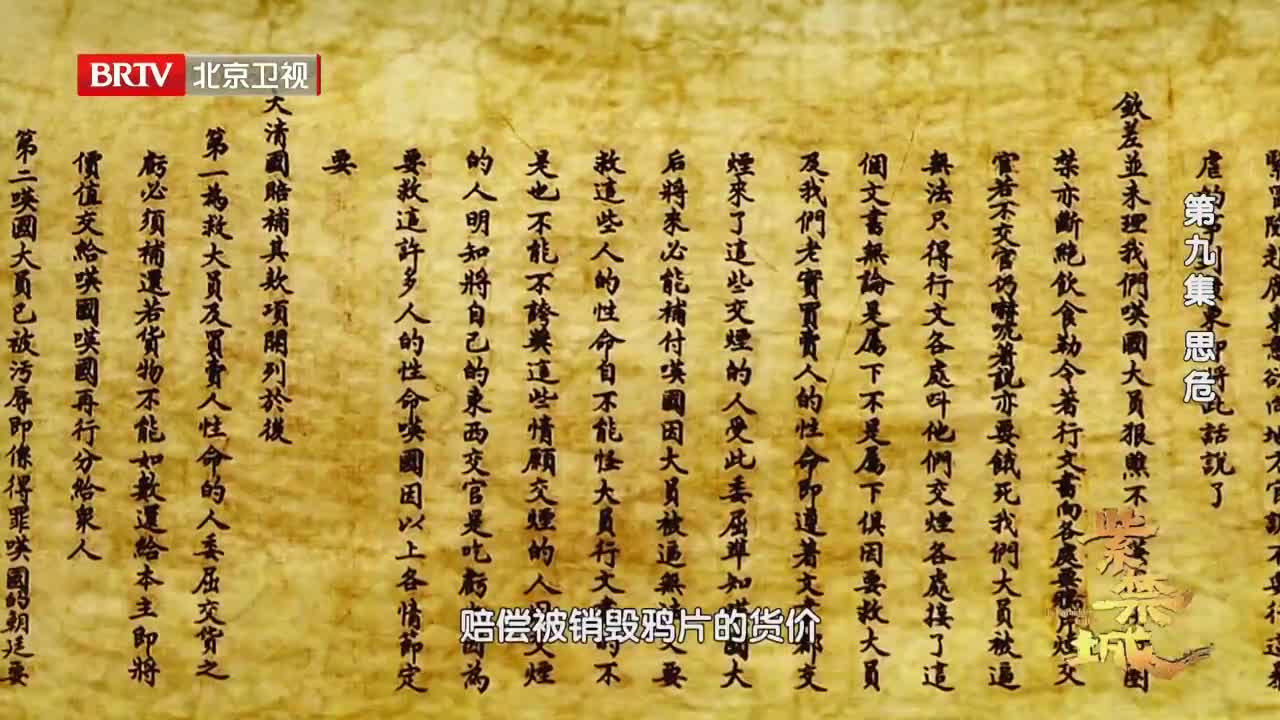 BRTV 北京卫视
第九集 思危
紫禁城
虐的
東即將此話說了
欽差並未理我們㗸國大員狠煞不
禁亦斷絶飲食勒令著行文書向各處要鴉片烟交
官若不交官仍嚇唬著說亦要餓死我們大員被逼
無法只得行文各處呌他們交煙各處接了這
個文書無論是属下不是属下俱因要救大員
及我們老實買賣人的性命即遵著文
煙來了這些交煙的人受此委屈準知
后將來必能補付㗸國因大員被逼無
救這些人的性命自不能怪大員行文
是也不能不誇奬這些情願交煙的人
的人明知將自己的東西交官是吃虧
要救這許多人的性命㗸國因以上各情節定
要
大清國賠補其款項開列於後
第一為救大員及買賣人性命的人委屈交貨之
虧必須補還若貨物不能如數還給本主即將
價值交給㗸國㗸國再行分給衆人
第二㗸國大員已被污辱即係得罪㗸國的朝廷要
赔偿被销毁鸦片的货价